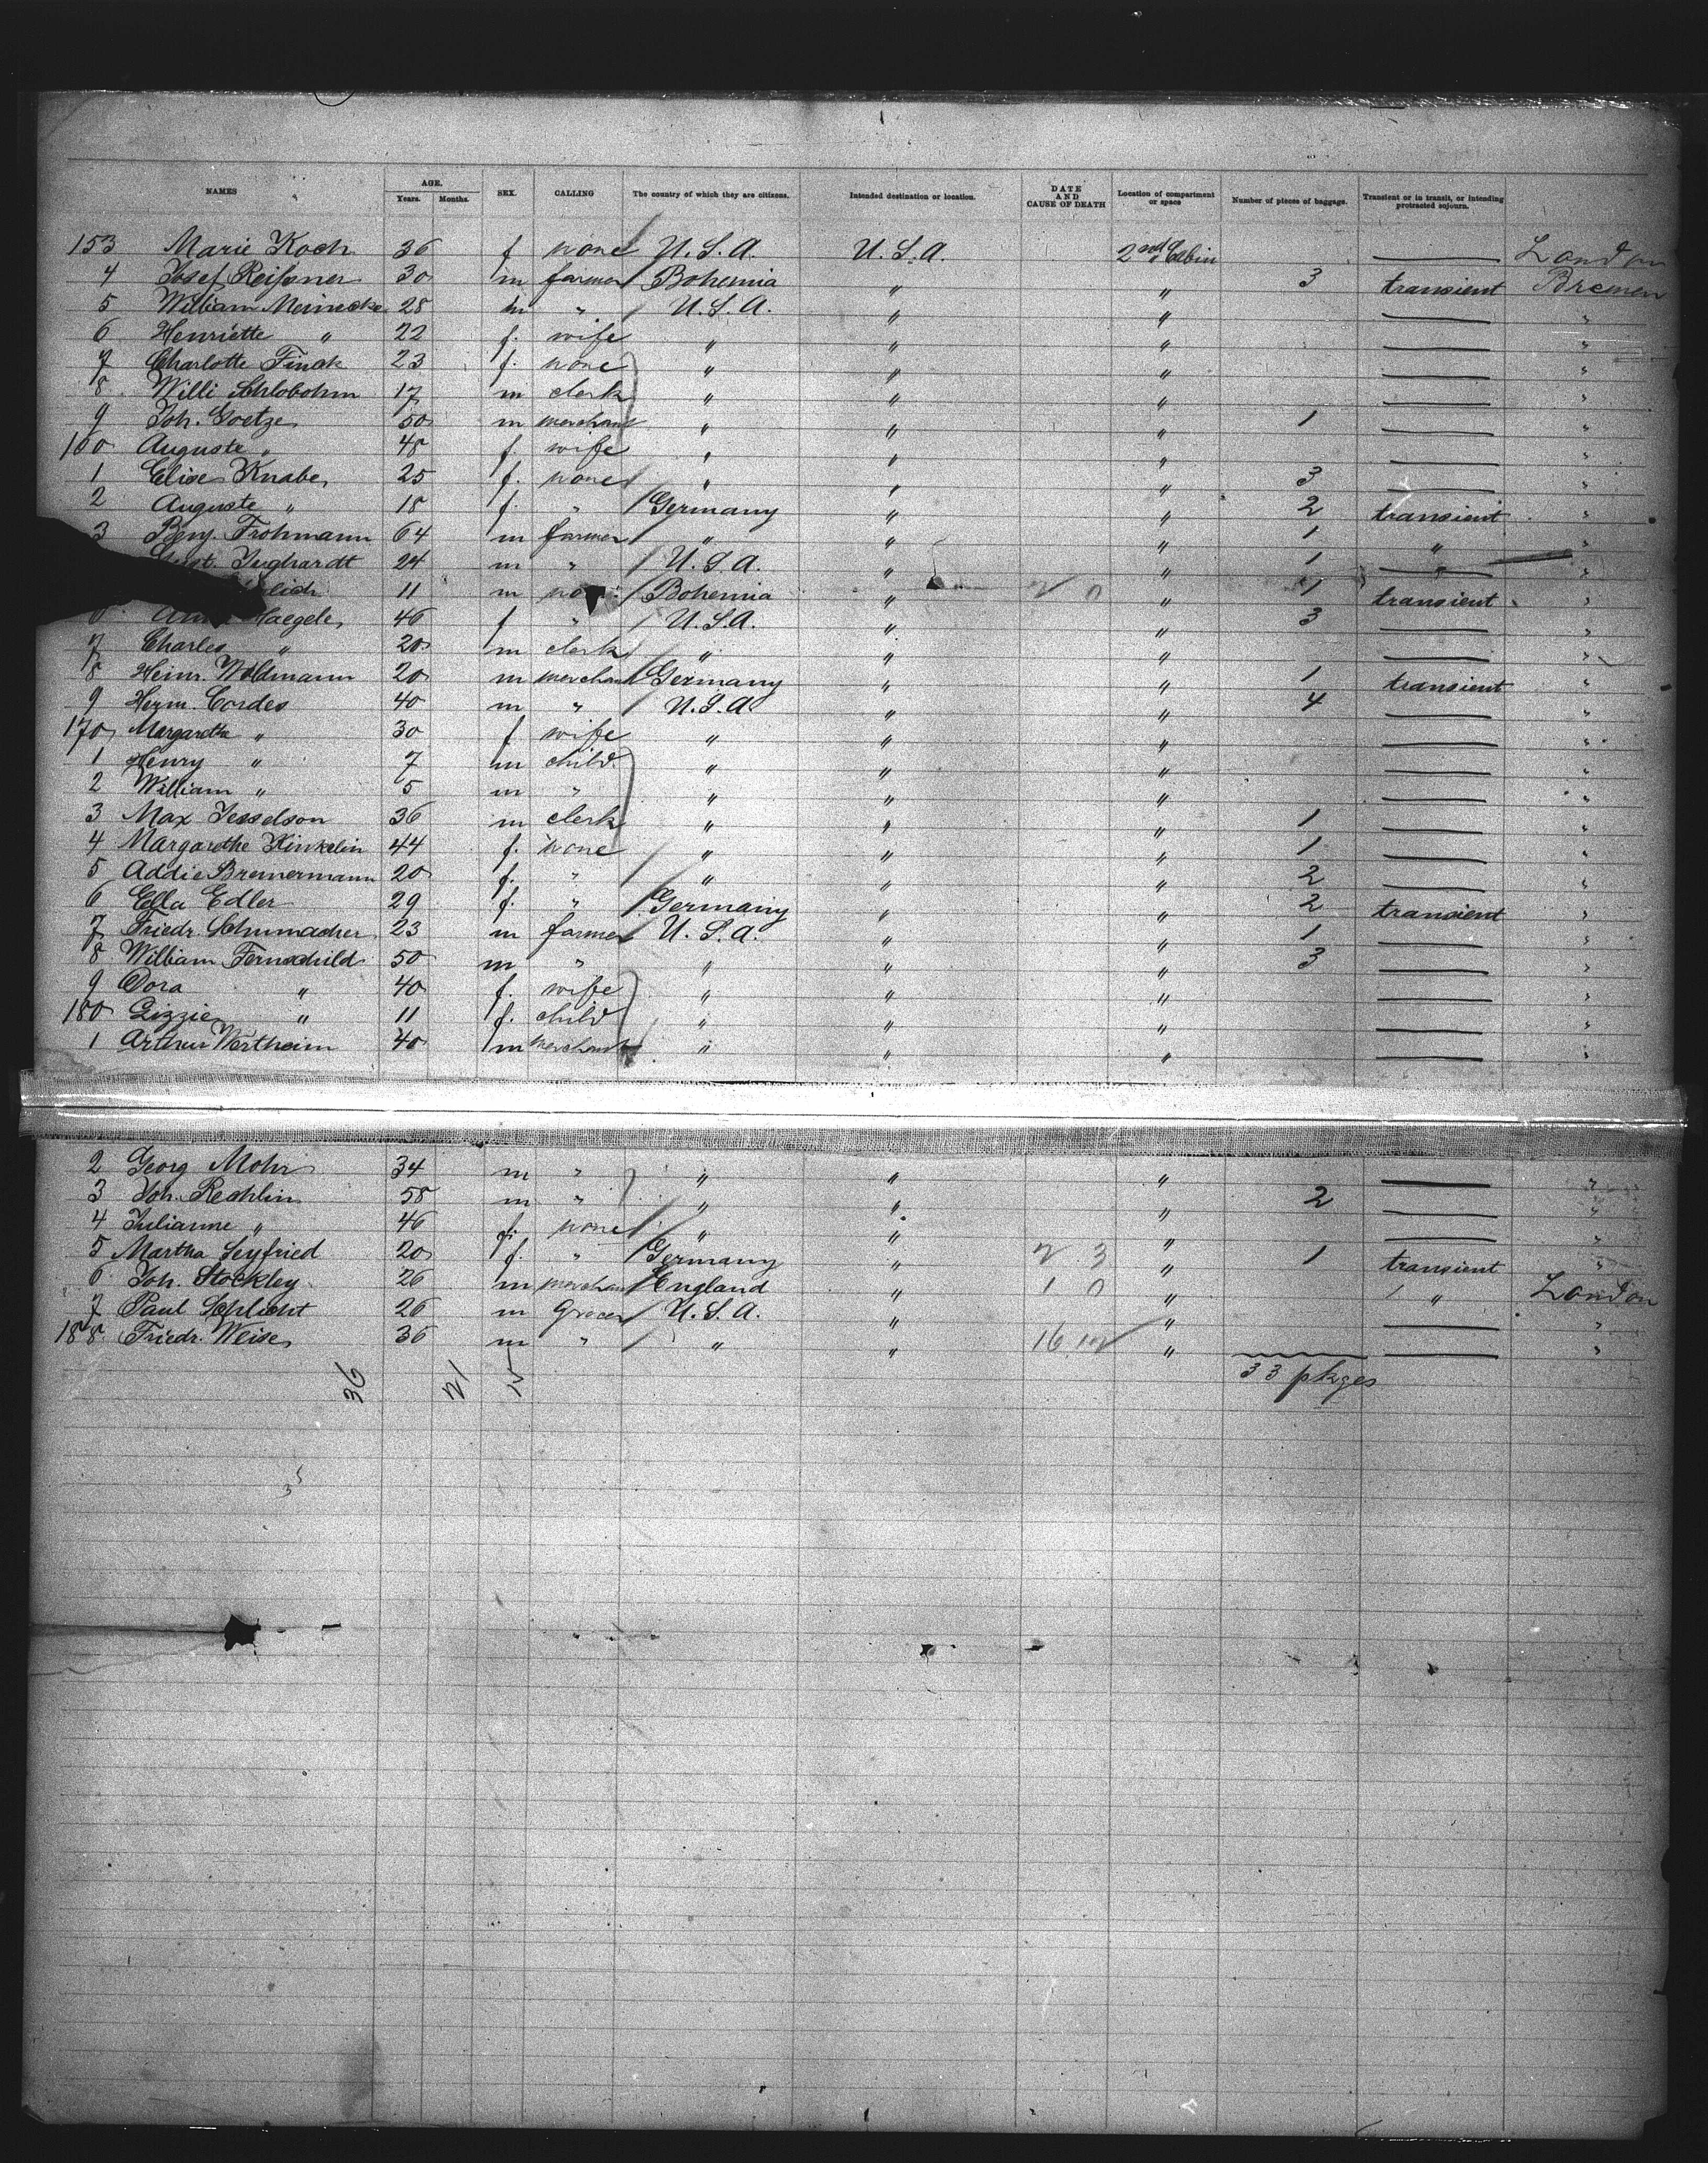 NAMES AGE. Years. Months. SEX. CALLING The country of which they are citizens. Intended destination or location. DATE AND CAUSE OF DEATH Location of compartment or space Number of pieces of baggage. Transient or in transit, or intending protracted sojourn.
153 Marie Koch 36 f none U.S.A. U.S.A. 2nd Cabin — London
4 Josef Reißner 30 m farmer Bohemia " " 3 transient Bremen
5 William Meinecke 28 m " U.S.A. " " — "
6 Henriette " 22 f. wife " " " — "
7 Charlotte Finck 23 f. none " " " — "
8 Willi Schlobohm 17 m clerk " " " — "
9 Joh. Goetze 50 m merchant " " " 1 — "
160 Auguste " 48 f. wife " " " — "
1 Elise Knabe 25 f. none " " " 3 — "
2 Auguste " 18 f. " Germany " " 2 transient "
3 Benj. Frohmann 64 m farmer " " " 1 " "
Junghardt 24 m " U.S.A. " " 1 — "
11 m Bohemia " " 1 transient "
6 Anna Haegele 46 f " U.S.A. " " 3 — "
7 Charles " 20 m clerk " " " — "
8 Heinr. Woldmann 20 m merchant Germany " " 1 transient "
9 Herm. Cordes 40 m " U.S.A. " " 4 — "
170 Margaretha " 30 f wife " " " — "
1 Henry " 7 m child " " " — "
2 William " 5 m " " " " — "
3 Max Jesselson 36 m clerk " " " 1 — "
4 Margarethe Hinkelin 44 f. none " " " 1 — "
5 Addie Bremermann 20 f. " " " " 2 — "
6 Ella Edler 29 f. " Germany " " 2 transient "
7 Friedr. Schumacher 23 m farmer U.S.A. " " 1 — "
8 William Fernschild 50 m " " " " 3 — "
9 Dora " 40 f. wife " " " — "
180 Lizzie " 11 f. child " " " — "
1 Arthur Wertheim 40 m merchant " " " — "
2 Georg Mohr 34 m " " " " — "
3 Joh. Rechlin 58 m " " " " 2 — "
4 Julianne " 46 f. none " " " — "
5 Martha Seyfried 20 f. " Germany " 2 3 " 1 transient "
6 Joh. Stockley 26 m merchant England " 1 0 " " London
7 Paul Schlicht 26 m Grocer U.S.A. " " — "
188 Friedr. Weise 36 m " " " 16 12 " — "
36 21 15 33 pkges